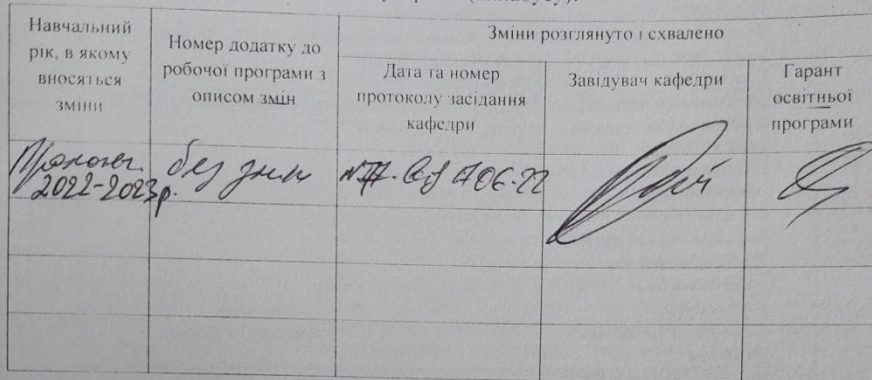 Навчальний
рік, в якому
вносяться
зміни
Номер додатку до
робочої програми з
описом змін
Зміни розглянуто і схвалено
Дата та номер
протоколу засідання
кафедри
Завідувач кафедри
Гарант
освітньої
програми
2022-2023р.
без змін